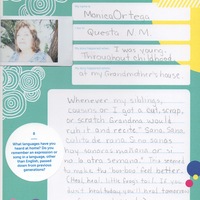 Monica Ortega
Questa, N.M.
I was young.
Throughout childhood
at my Grandmother's house.
What languages have you
heard at home? Do you
remember an expression or
song in a language, other
than English, passed
down from previous
generations?
Whenever my siblings,
cousins or I got a cut, scrap,
or scratch Grandma would
rub it and recite "Sana, Sana
colita de rana. Si no sanas
hoy sanaras mañana or si
no la otra semana." This seemed
to make the booboo feel better.
(heal, heal, little frogs tail. If you
don't heal today you'll heal tomorrow